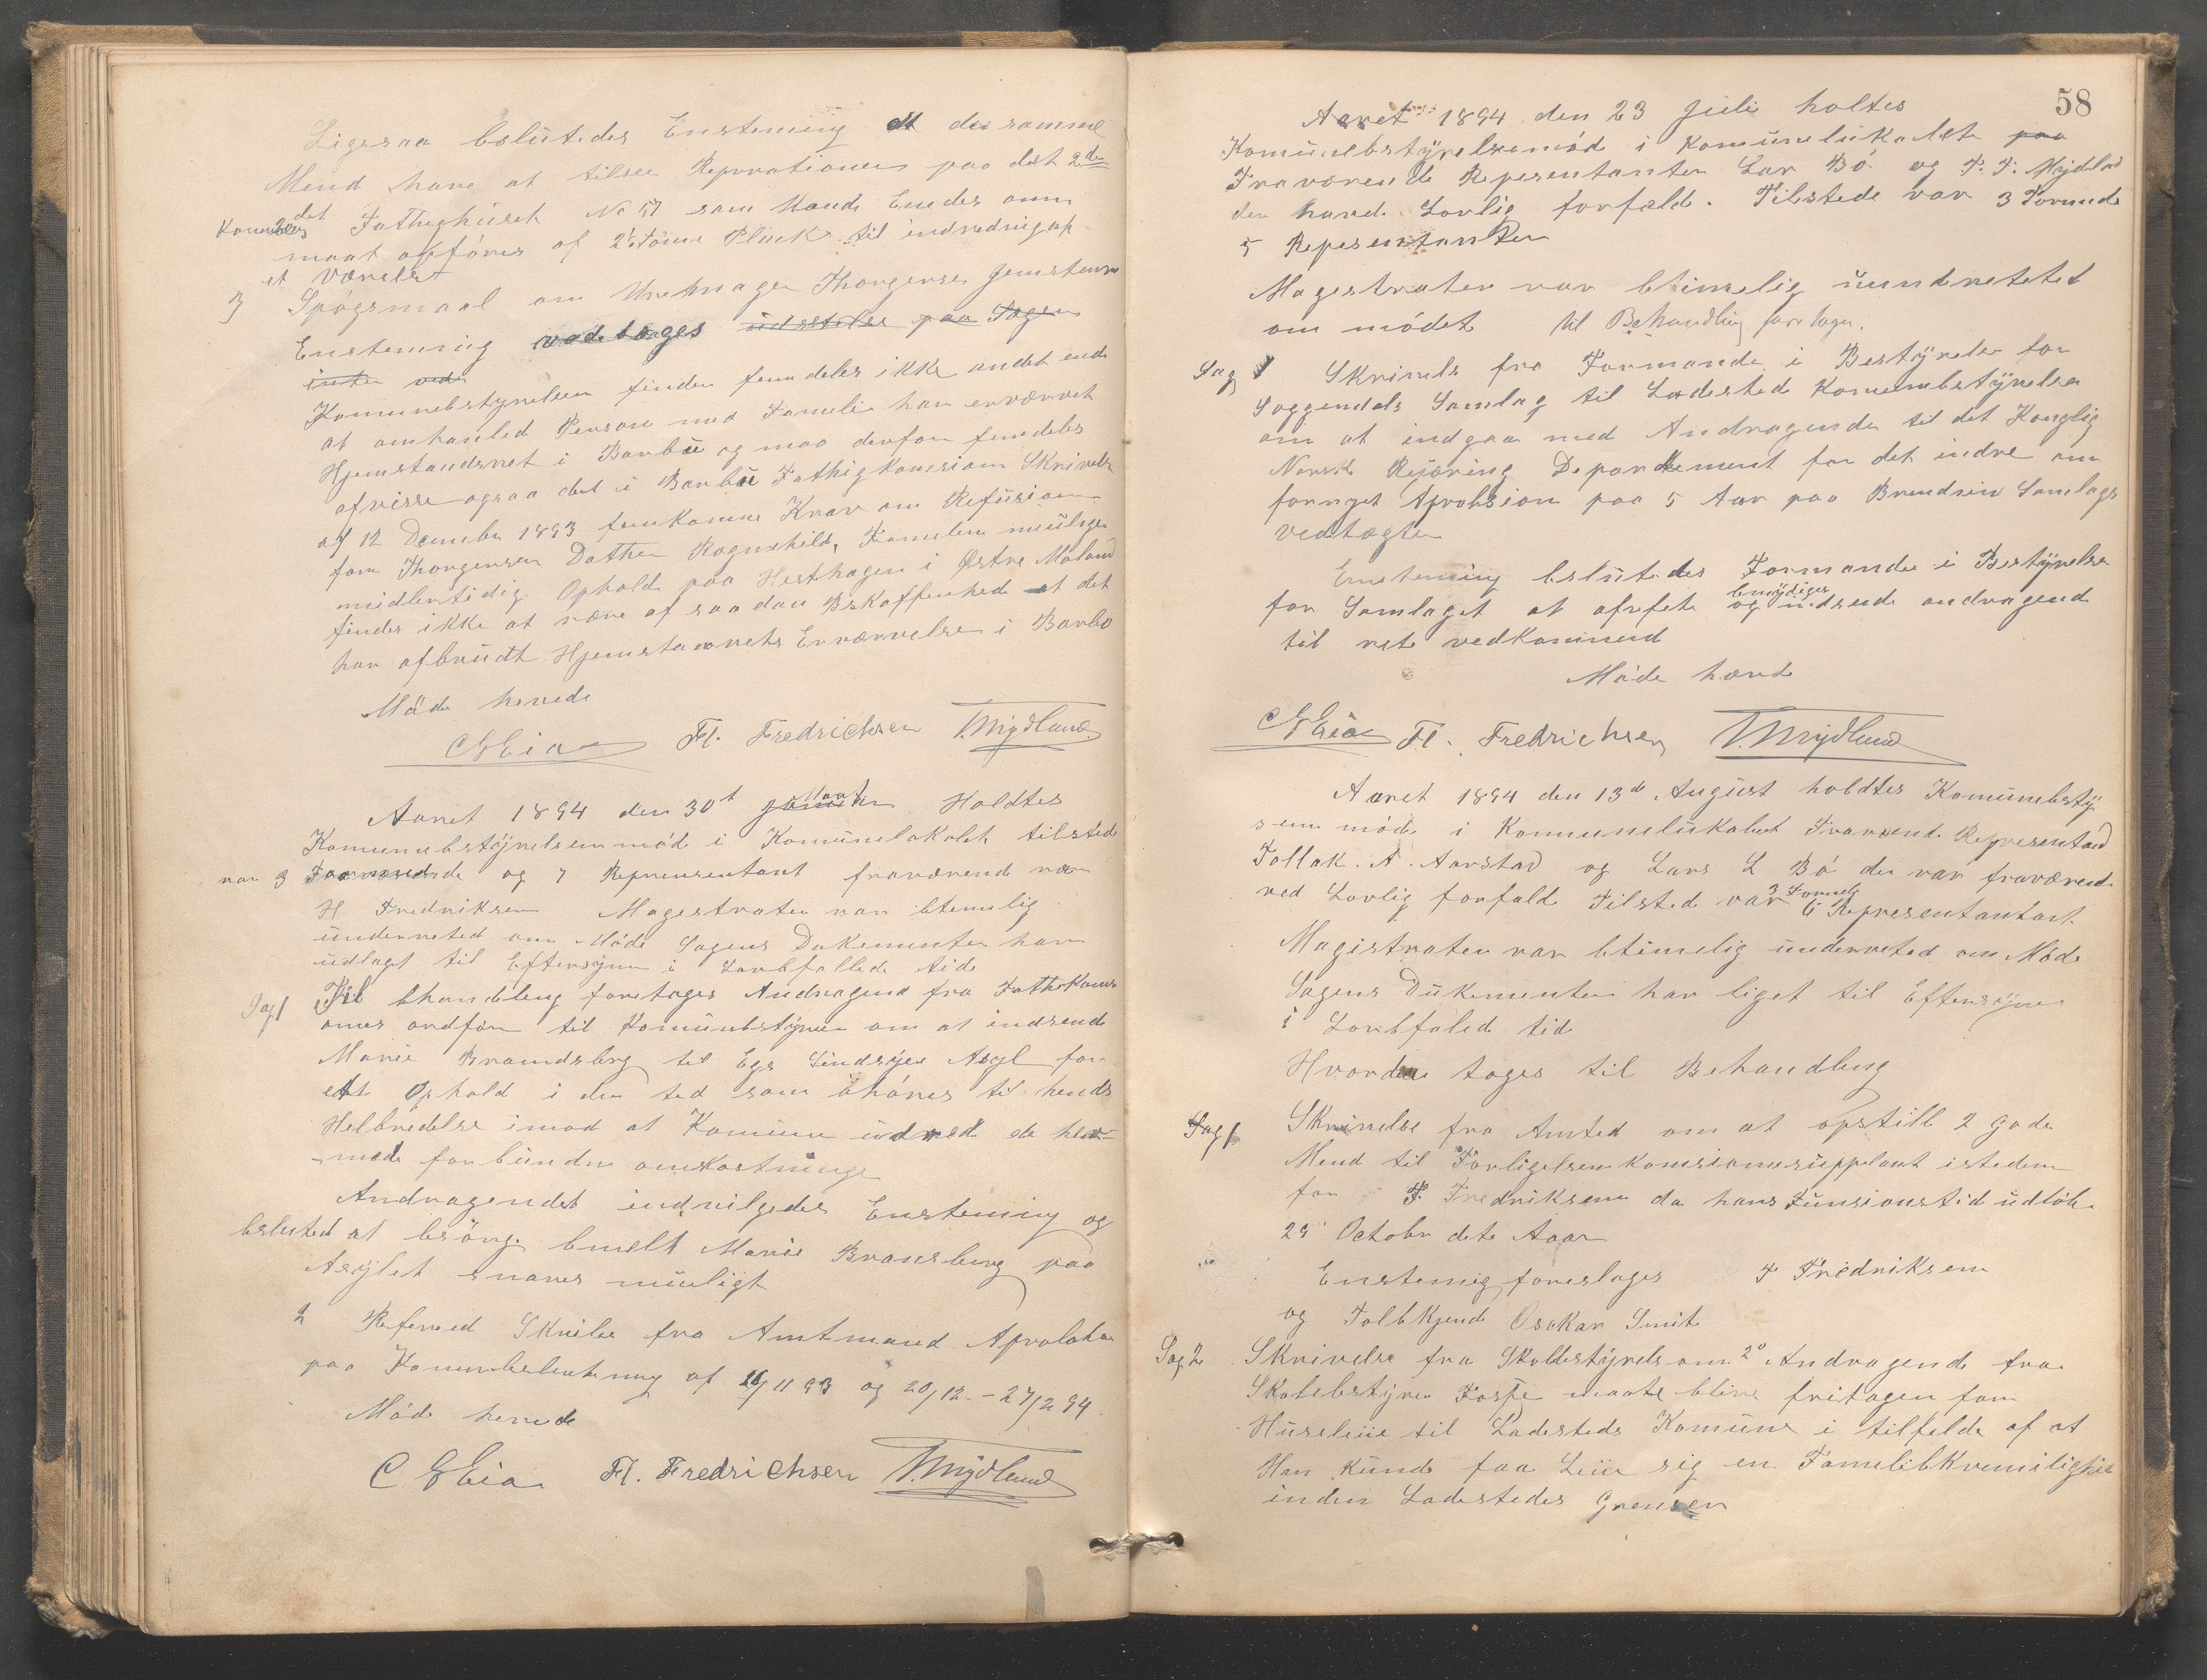 Ligesaa beslutedes Ensteming at de samme
Mend have at tilsee Reparationer paa det 2de
Komunedes det Fathighuset No 51 som Mandi Enedes om
maat opføres af 2½ Tóme Plank til indredning af
et Værelse
3 Spøgsmaal om Uremager Thorgersen Jemstavn
Enstemnig vedtoges udsettes paa Sagen
inten vedr
Komunebstyrelsen finder fremdeles ikke andet end
at omhanled Person med Fameli har erværvet
Hjemstandsret i Barbu og maa derfor fremdeles
afvisse ogsaa det i Barbu Fathigkomsion Skrivels
af 12 Decmber 1893 fremkomne Krav om Refusion
for Thorgersen Dather Ragnehild, Familen muulige
midlertidig Ophold paa Hesthagen i Østre Moland
findes ikke at være af saadan Bskaffenhed at det
har afbrudt Hjemstavnsrets Erværvelse i Barbo
Møde hevede
C G Eia Fl. Fredrichsen T. Mydland
Aaret 1894 den 30t Marts Holdtes
Komunebstyrelsenmød i Komunelokalet tilsted
var 3 Formend og 7 Reprensentant fraværend var
H Fredriksen Magestraten var btemelig
underreted om Møde Sagens Dokumenter har
udlaget til Eftersyn i Lovbfallede tid
Sag 1 Til bhandleng foretages Andragend fra Fathikoms
ones ordfør til Komunebstyren om at indsend
Marie Bramdsbrg til Egs Sindsyge Asyl for
ett Ophold i den tid som bhøves til hends
Helbredelse imod at Komune udred de her-
med forbundne omkostninge
Andragendet indvilgedes Enstemnig og
besluted at bsørge bmelt Marie Bransberg paa
Asylet snares muuligt
2 Refereed Skrivlse fra Amtmand Aprobation
paa Komunbeslutning af 16/11 93 og 20/12 - 27/2 94.
Møde hevede
C G Eia Fl. Fredrichsen T. Mydland
58
Aaret 1894 den 23 Juli holtes
Komunebstyrelsemød i Komunelukalet paa
Fraværende Repesentanter Lar Bø og P. T. Mydlad
der havde Lovlig forfald. Tilstede var 3 Formnd
5 Repesentanter
Magestraten var btimelig uundretetet
om mødet til Behandling foretages.
Sag 1 Skrivels fra Formande i Bestyrelse for
Soggendals Samlag til Ladested Komunebstyrelse
om at indgaa med Andragende til det Konglig
Norsk Rejæring Departement for det indre om
fornyet Aprobsion paa 5 Aar paa Brendsvin Samlags
vedtægter
Enstemnig bslutedes Formande i Bestyrelse
for Samlaget at afefete bmyndiges og indsende andragend
til rete vedkommend
Møde hævede
C G Eia Fl. Fredrichsen T. Mydland
Aaret 1894 den 13de August holdtes Komunebstyr
senn møde i Komunelukalent Fraværend Representand
Tollak. A. Aarstad og Lars L Bø der var fraværend
ved Lovlig forfald Tilsted var 3 Formend 6 Representantant
Magistraten var btimelig underreted om Møde
Sagens Dukementer har liget til Eftersyn
i Lovbfaled tid
Hvorden toges til Behandleng
Sag 1 Skrivelse fra Amted om at opstill 2 gode
Mend til Forligelsenkomsionssuppelant isteden
for F. Fredriksen da hans Funsionstid udlób
29 Octobr dete Aaar
Enstemnig foreslages F Fredriksen
og Tolbkjend Osckar Smit
Sag 2 Skrivelse fra Skolbstyrels om 2o Andragende fra
Skolebstyrer Fosse maate blive fritagen for
Husleiie til Ladesteds Komune i tilfelde af at
Han kunde faa Leiie sig en Famelibkvemilighed
inden Ladestedes Grensen